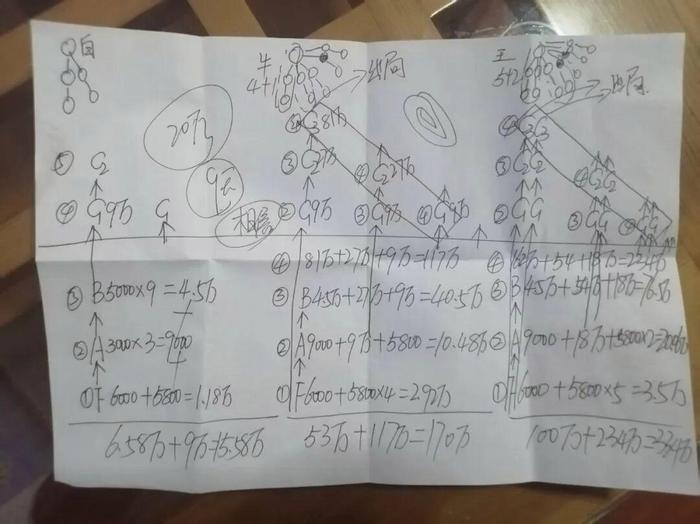 自
⑤ G₂
④ G9万 G
20万
9套
③ B5000×9=4.5万
② A3000×3=9000
① F6000+5800=1.18万
6.58万+9万=15.58万
半
4+1
出局
G₃81万
③ G₂27万 ④ G₂27万
② G9万 ③ G9万 ④ G9万
④ 81万+27万+9万=117万
③ B4.5万+27万+9万=40.5万
② A9000+9万+5800=10.48万
① F6000+5800×4=2.92万
53万+117万=170万
王
5+2
出局
G₃G₃
③ G₂G₂ ④ G₂G₂
② GG ③ GG GG
④ 162万+54+18万=234万
③ B4.5万+54万+18万=76.5万
② A9000+18万+5800×2=20.06万
① F6000+5800×5=3.5万
100万+234万=334万